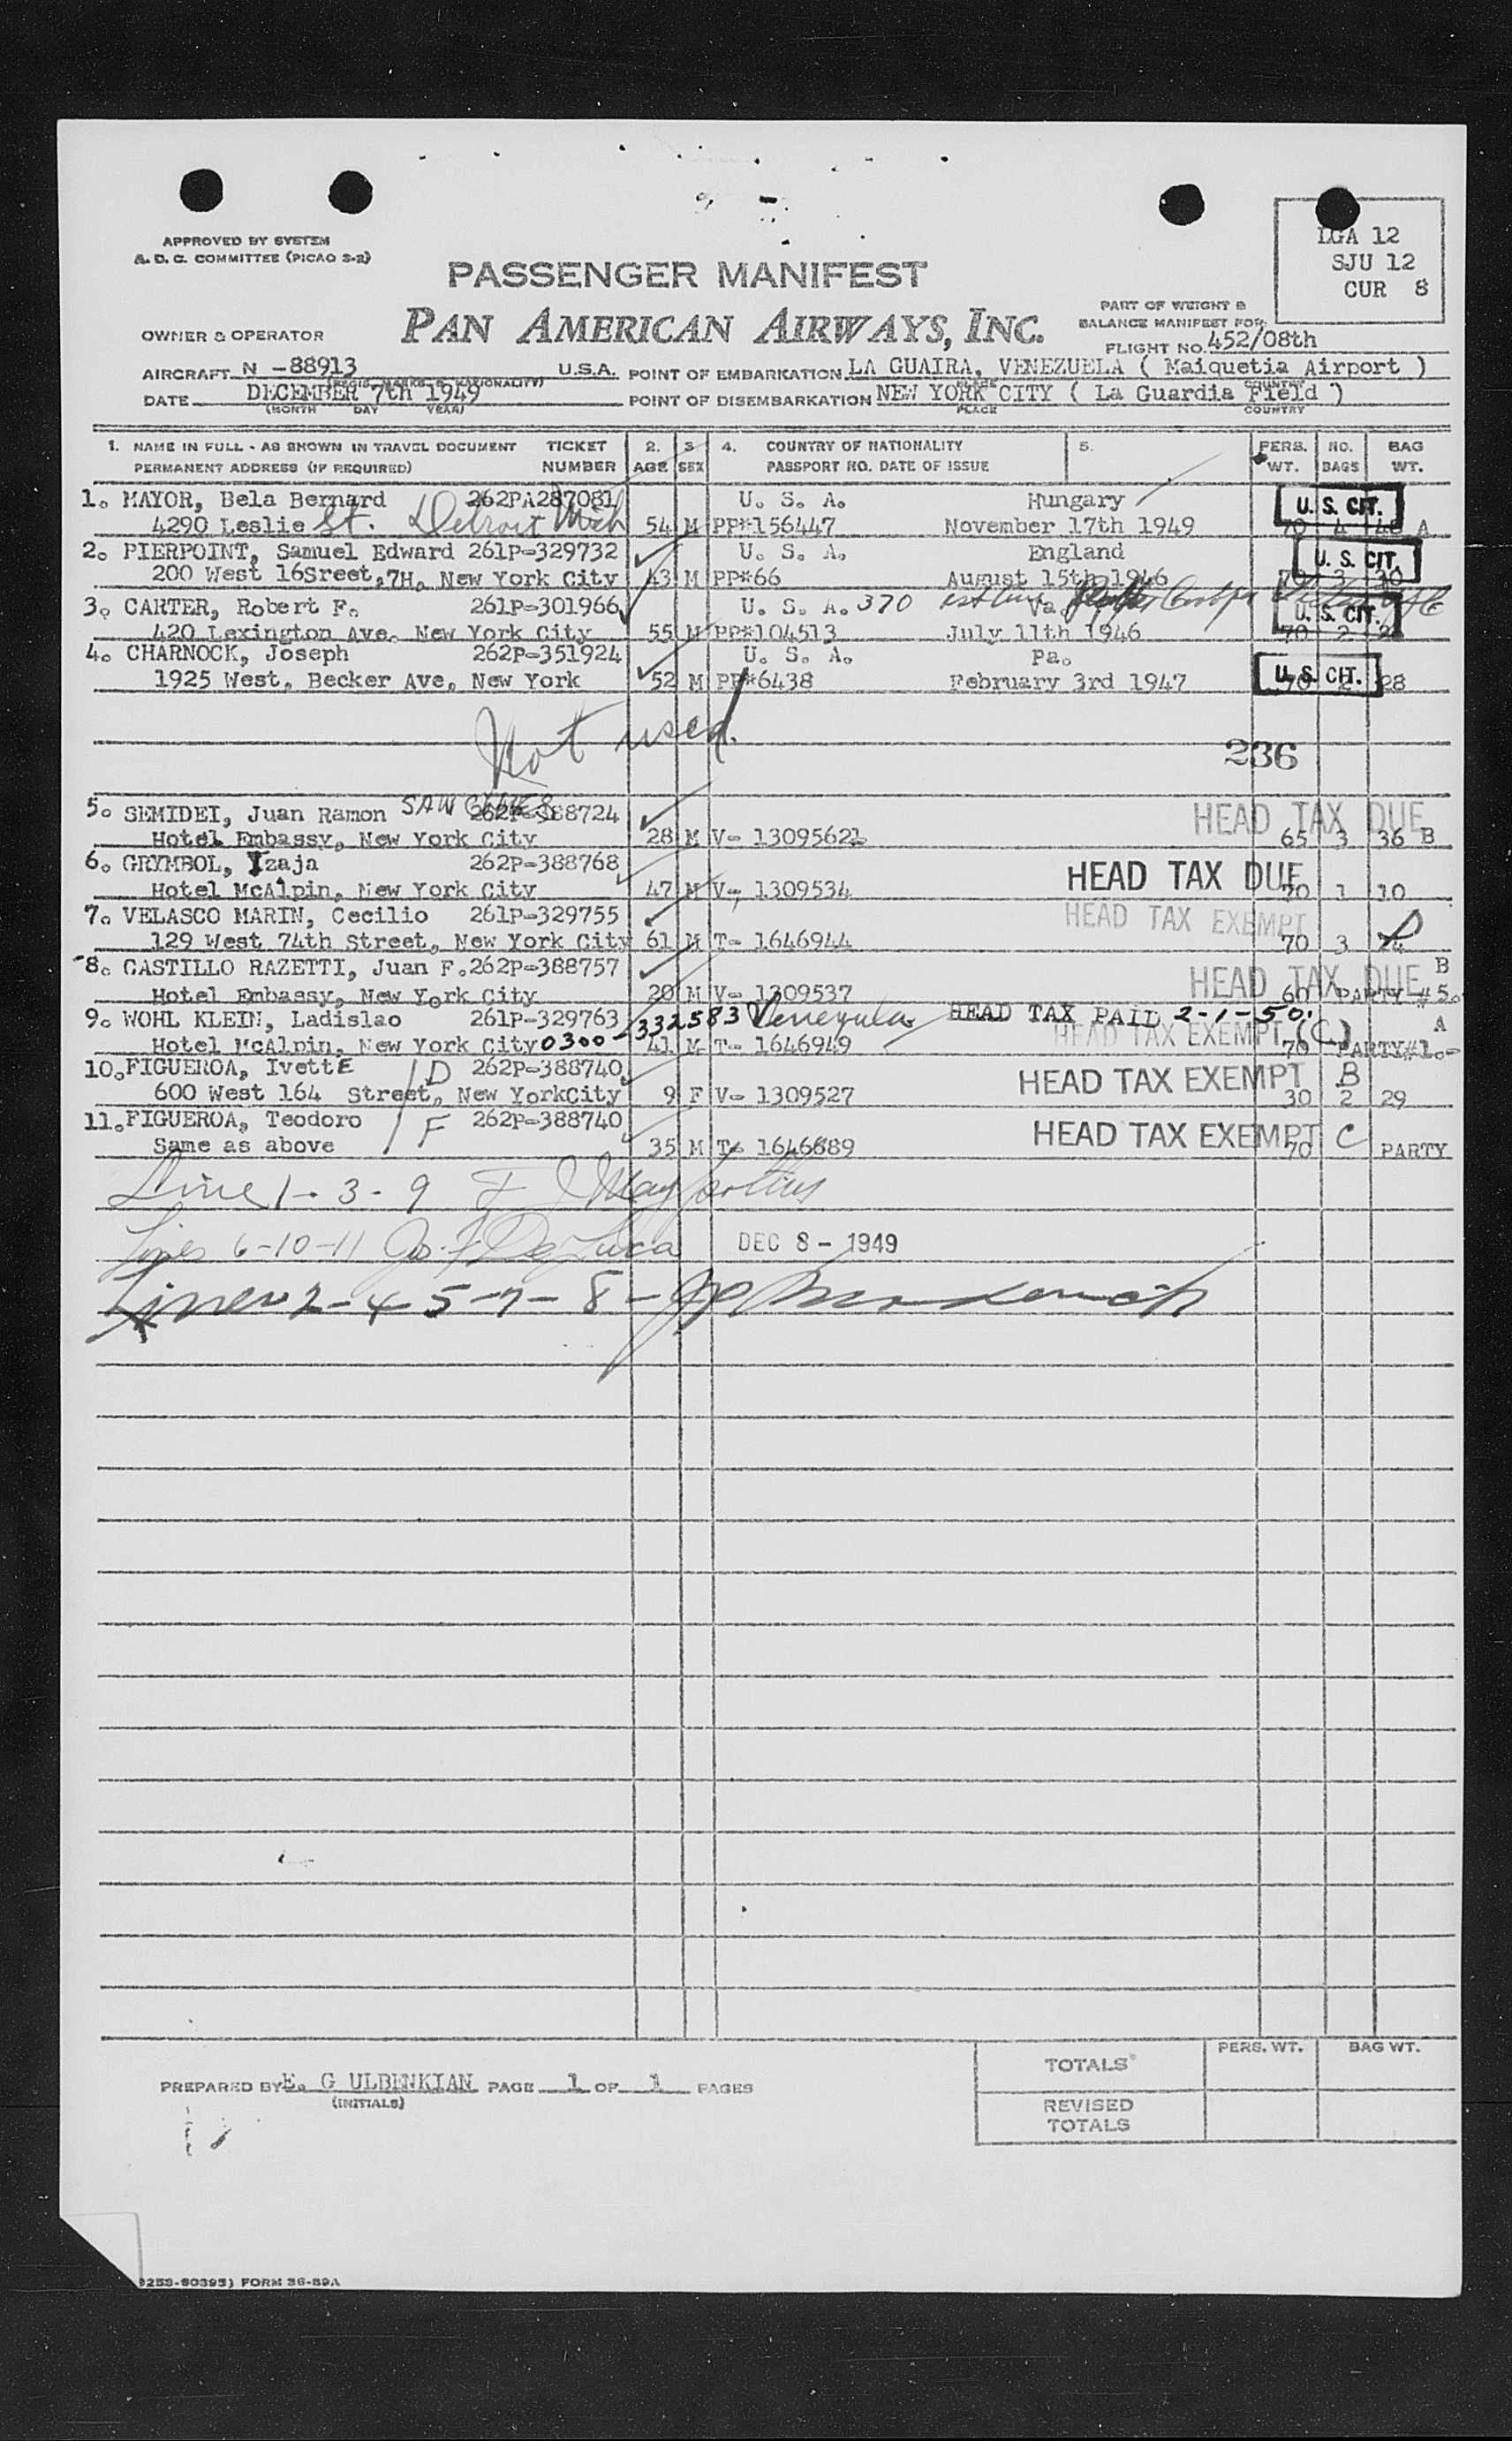 APPROVED BY SYSTEM
A. D. C. COMMITTEE (PICAO S-2)
LGA 12
SJU 12
CUR 8
PASSENGER MANIFEST
PAN AMERICAN AIRWAYS, INC.
PART OF WEIGHT &
BALANCE MANIFEST FOR
OWNER & OPERATOR
FLIGHT NO. 452/08th
AIRCRAFT N -88913 U.S.A. POINT OF EMBARKATION LA GUAIRA, VENEZUELA ( Maiquetia Airport )
DATE DECEMBER 7th 1949 POINT OF DISEMBARKATION NEW YORK CITY ( La Guardia Field )
(MONTH DAY YEAR) PLACE COUNTRY
1. NAME IN FULL - AS SHOWN IN TRAVEL DOCUMENT TICKET 2. 3 4. COUNTRY OF NATIONALITY 5. PERS. NO. BAG
PERMANENT ADDRESS (IF REQUIRED) NUMBER AGE SEX PASSPORT NO. DATE OF ISSUE WT. BAGS WT.
1. MAYOR, Bela Bernard 262PA287081 U. S. A. Hungary U. S. CIT.
4290 Leslie St. Detroit Mich 54 M PP#156447 November 17th 1949 70 4 48 A
2. PIERPOINT, Samuel Edward 261P-329732 U. S. A. England U. S. CIT.
200 West 16Sreet,7H. New York City 43 M PP#66 August 15th 1946 70 3 30
3. CARTER, Robert F. 261P-301966 U. S. A. 370 Va. U. S. CIT.
420 Lexington Ave. New York City 55 M PP#104513 July 11th 1946 70 2
4. CHARNOCK, Joseph 262P-351924 U. S. A. Pa.
1925 West, Becker Ave, New York 52 M PP#6438 February 3rd 1947 70 2 28 U. S. CIT.
Not used.
236
5. SEMIDEI, Juan Ramon 262P-388724 HEAD TAX DUE
Hotel Embassy, New York City 28 M V- 13095621 65 3 36 B
6. GRYMBOL, Izaja 262P-388768 HEAD TAX DUE
Hotel McAlpin, New York City 47 M V- 1309534 70 1 10
7. VELASCO MARIN, Cecilio 261P-329755 HEAD TAX EXEMPT
129 West 74th Street, New York City 61 M T- 1646944 70 3
8. CASTILLO RAZETTI, Juan F. 262P-388757 HEAD TAX DUE B
Hotel Embassy, New York City 20 M V- 1309537 60 PARTY #5.
9. WOHL KLEIN, Ladislao 261P-329763 332583 Venezuela HEAD TAX PAID 2-1-50. A
Hotel McAlpin, New York City 0300- 41 M T- 1646949 HEAD TAX EXEMPT (C) 70 PARTY#1.-
10. FIGUEROA, IvettE 1 D 262P-388740 HEAD TAX EXEMPT B
600 West 164 Street, New YorkCity 9 F V- 1309527 30 2 29
11. FIGUEROA, Teodoro 1 F 262P-388740 HEAD TAX EXEMPT C
Same as above 35 M T- 1646689 70 PARTY
Line 1 - 3 - 9
Lines 6-10-11 Jos. F De Luca DEC 8 - 1949
Lines 2-4-5-7-8-
PREPARED BY E. G ULBENKIAN PAGE 1 OF 1 PAGES
(INITIALS)
TOTALS PERS. WT. BAG WT.
REVISED
TOTALS
FORM 36-89A